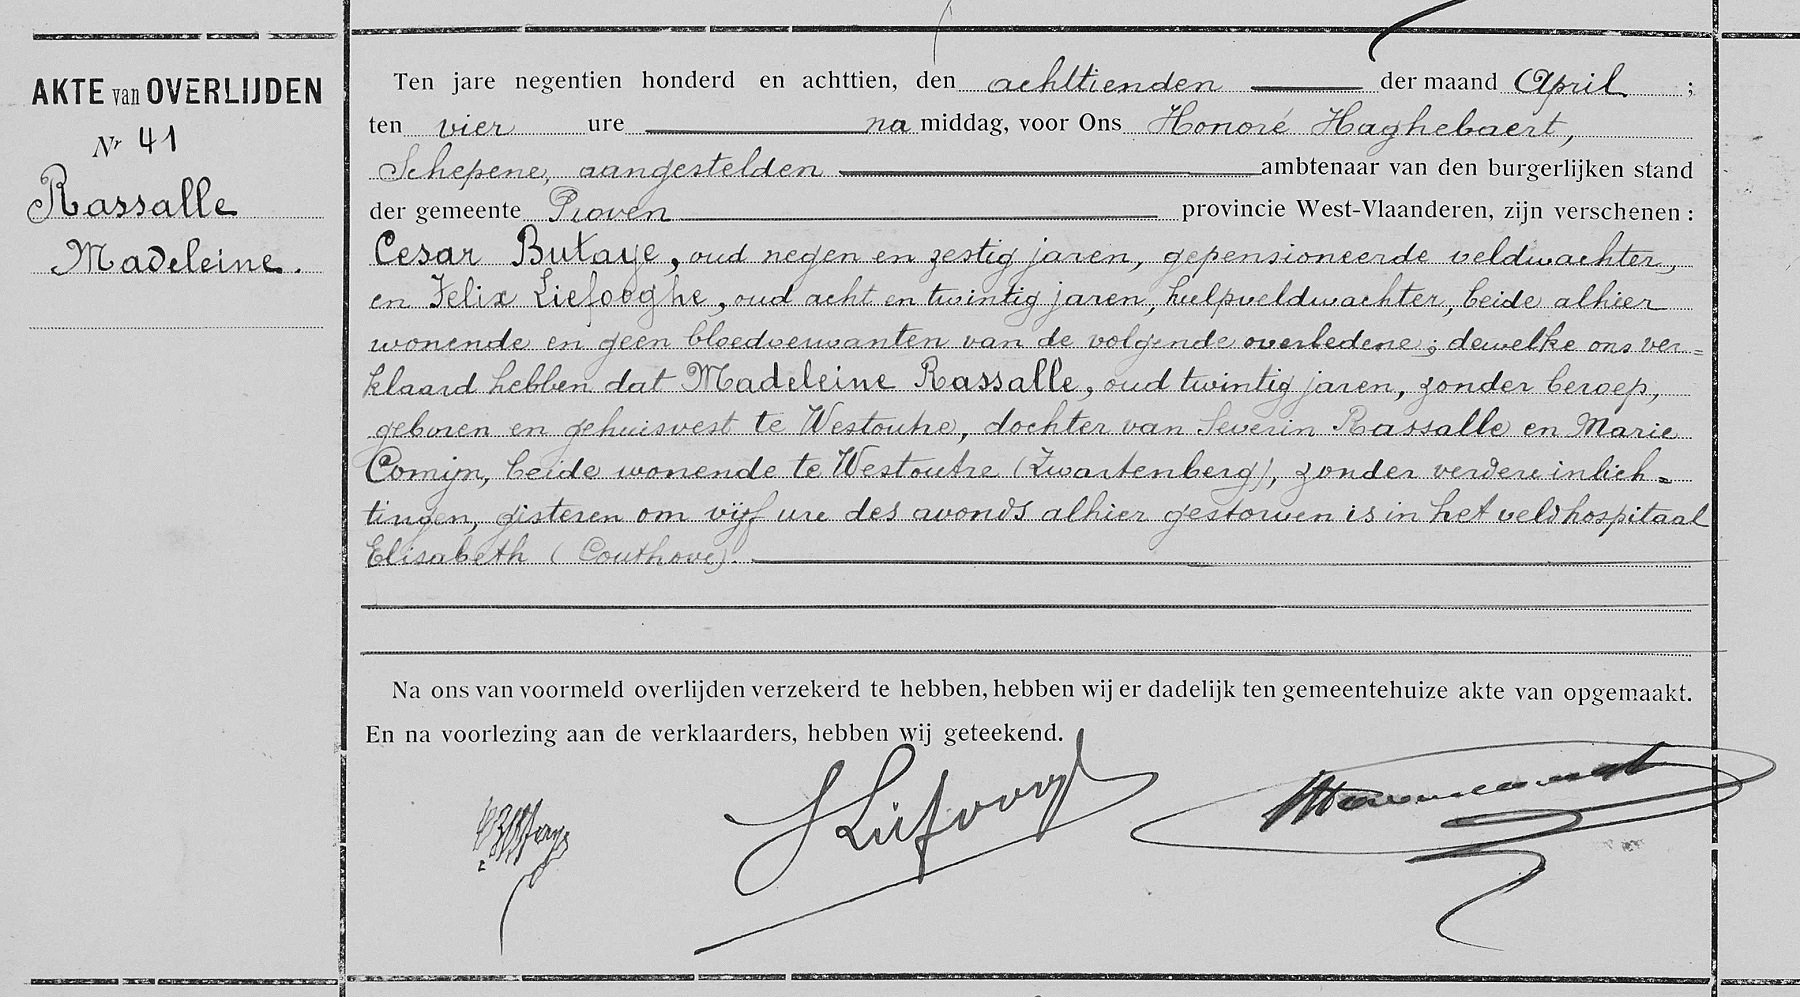 AKTE van OVERLIJDEN
Nr 41
Rassalle
Madeleine.
Ten jare negentien honderd en achttien, den achttienden der maand April ;
ten vier ure na middag, voor Ons Honoré Haghebaert,
Schepene, aangestelden ambtenaar van den burgerlijken stand
der gemeente Proven provincie West-Vlaanderen, zijn verschenen :
Cesar Butaye, oud negen en zestig jaren, gepensioneerde veldwachter,
en Felix Liefooghe, oud acht en twintig jaren, hulpveldwachter, beide alhier
wonende en geen bloedverwanten van de volgende overledene; dewelke ons ver=
klaard hebben dat Madeleine Rassalle, oud twintig jaren, zonder beroep,
geboren en gehuisvest te Westoutre, dochter van Severin Rassalle en Marie
Comijn, beide wonende te Westoutre (Zwartenberg), zonder verdere inlich=
tingen, gisteren om vijf ure des avonds alhier gestorven is in het veldhospitaal
Elisabeth (Couthove).
Na ons van voormeld overlijden verzekerd te hebben, hebben wij er dadelijk ten gemeentehuize akte van opgemaakt.
En na voorlezing aan de verklaarders, hebben wij geteekend.